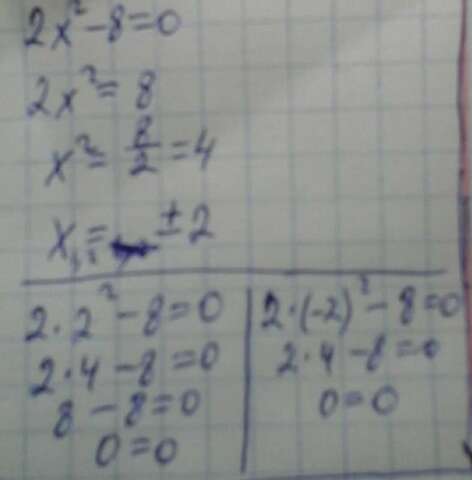 2x²-8=0
2x²=8
x²=8/2=4
x₁,₂=±2
2·2²-8=0
2·4-8=0
8-8=0
0=0
2·(-2)²-8=0
2·4-8=0
0=0